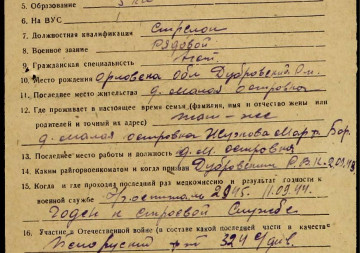 5. Образование 3 кл
6. На ВУС 1
7. Должностная квалификация Стрелок
8. Военное звание Рядовой
9. Гражданская специальность
10. Место рождения Орловская обл Дубровский р-н.
11. Последнее место жительства д. Малая островка
12. Где проживает в настоящее время семья (фамилия, имя и отчество жены или
родителей и точный их адрес) там-же
д. малая островка Марфа Бор.
13. Последнее место работы и должность д. М. островка
14. Каким райгорвоенкоматом и когда призван Дубровским РВК
15. Когда и где проходил последний раз медкомиссию и результат годности к
военной службе 11.09.44.
Годен к строевой службе
16. Участие в Отечественной войне (в составе какой последней части и в качестве
324 с/див.